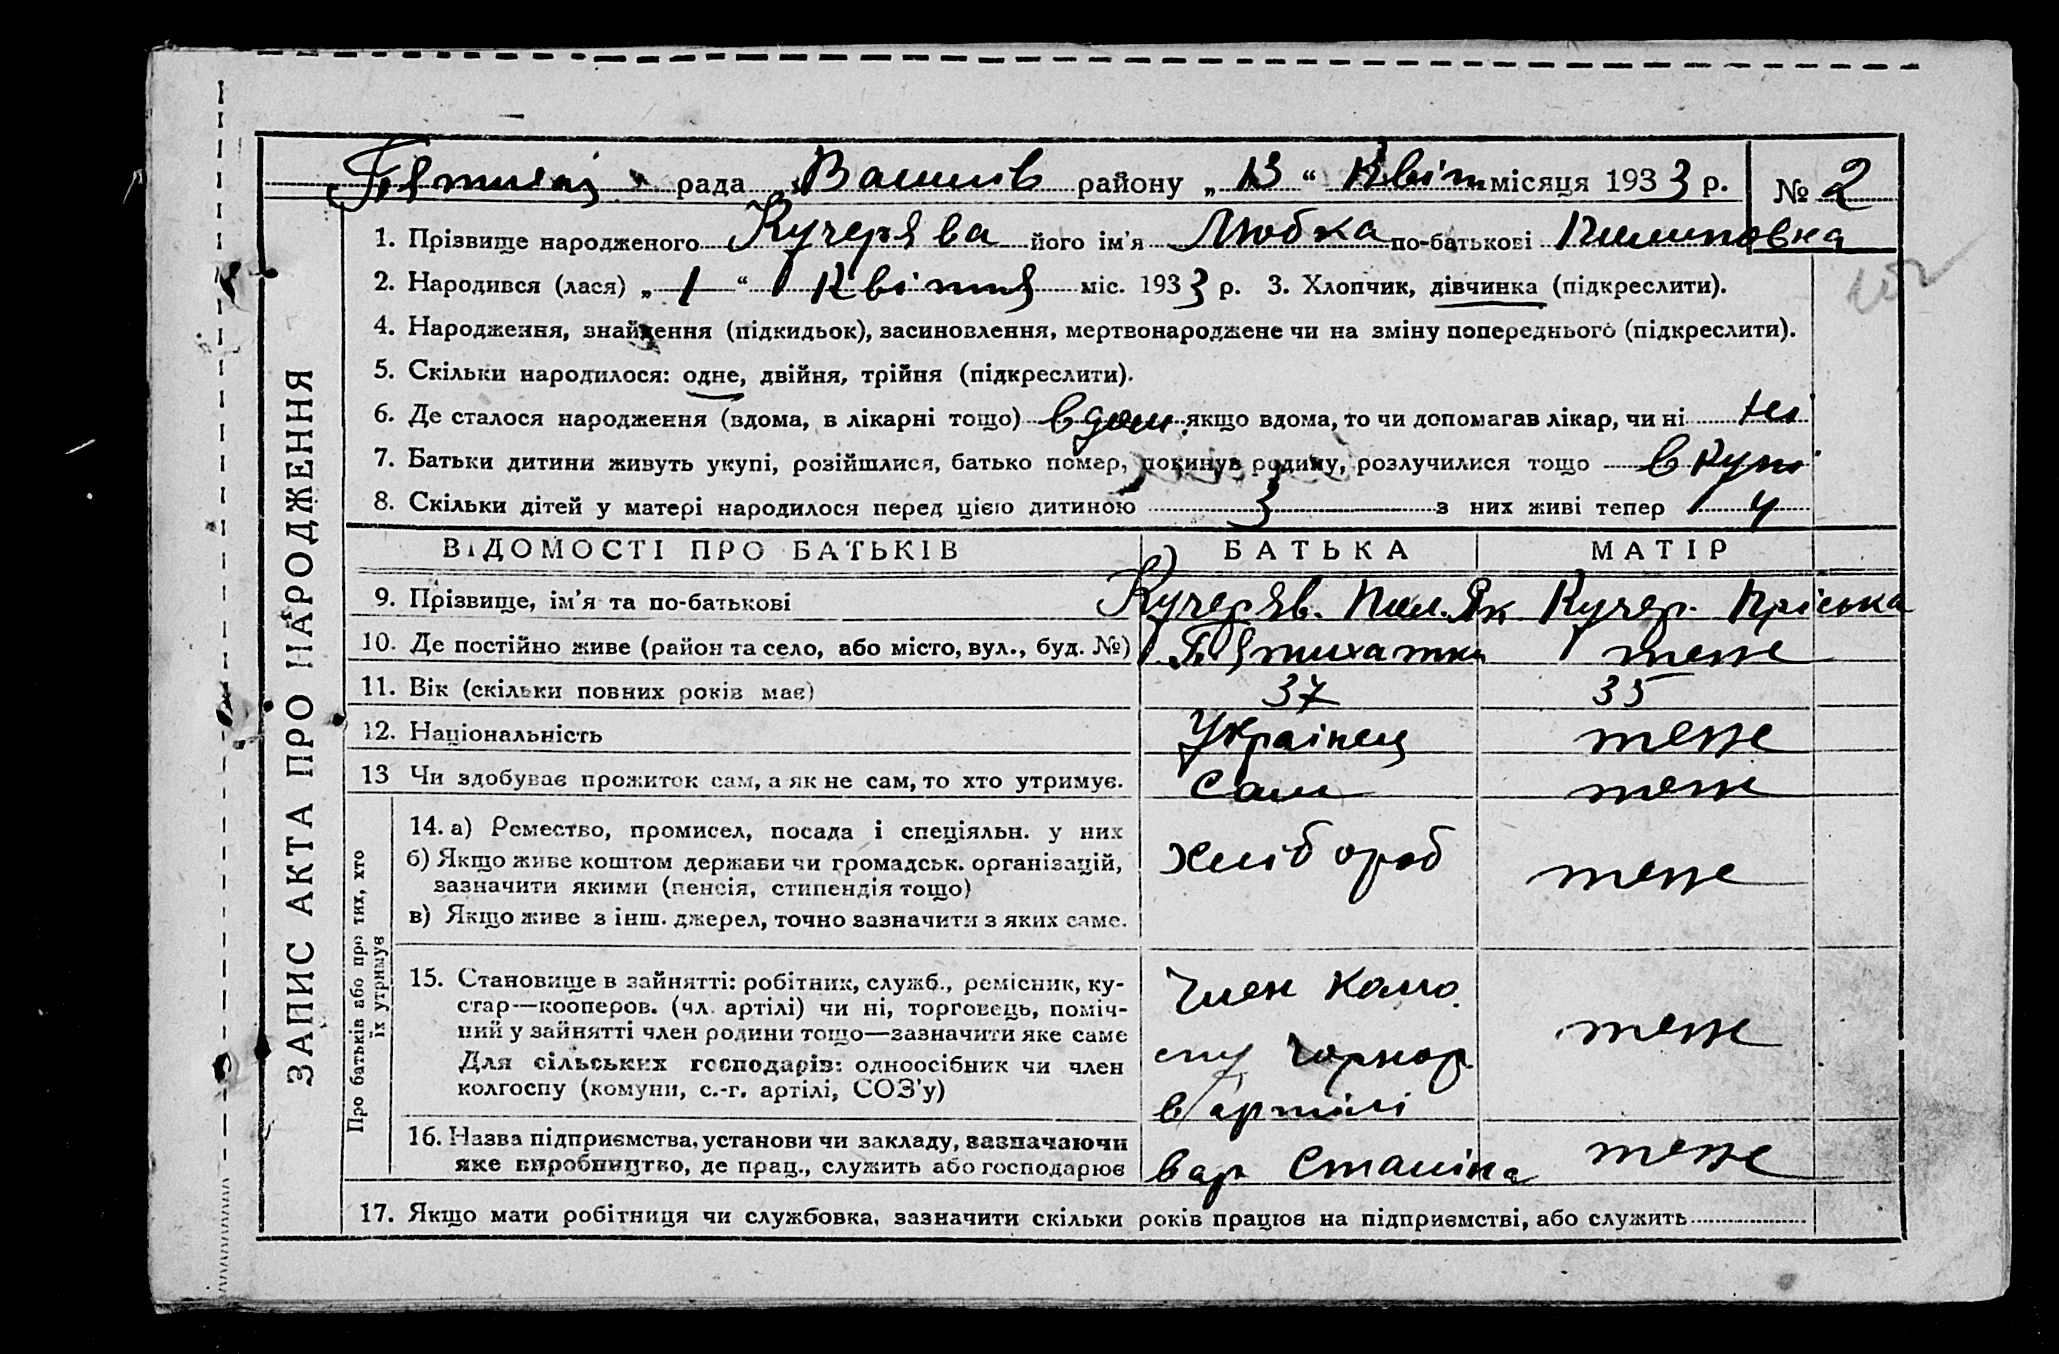 рада Валків району „ 13 “ Квітн місяця 1933 р. № 2
1. Прізвище народженого Кучерява його ім'я Любка по-батькові Пилиповна
2. Народився (лася) „ 1 “ Квітня міс. 1933 р. 3. Хлопчик, дівчинка (підкреслити).
4. Народження, знайдення (підкидьок), засиновлення, мертвонароджене чи на зміну попереднього (підкреслити).
5. Скільки народилося: одне, двійня, трійня (підкреслити).
6. Де сталося народження (вдома, в лікарні тощо) вдом. якщо вдома, то чи допомагав лікар, чи ні ні
7. Батьки дитини живуть укупі, розійшлися, батько помер, покинув родину, розлучилися тощо в купі
8. Скільки дітей у матері народилося перед цією дитиною 3 з них живі тепер 4
ВІДОМОСТІ ПРО БАТЬКІВ БАТЬКА МАТІР
9. Прізвище, ім'я та по-батькові Кучеряв. Пил. Як Кучер. Пріська
10. Де постійно живе (район та село, або місто, вул., буд. №) Пятихатки теже
11. Вік (скільки повних років має) 37 35
12. Національність Українец теже
13 Чи здобуває прожиток сам, а як не сам, то хто утримує. Сам теже
14. а) Ремество, промисел, посада і спеціяльн. у них
б) Якщо живе коштом держави чи громадськ. організацій, Хлібороб теже
зазначити якими (пенсія, стипендія тощо)
в) Якщо живе з інш. джерел, точно зазначити з яких саме.
15. Становище в зайнятті: робітник, служб., ремісник, ку- Член
стар—кооперов. (чл. артілі) чи ні, торговець, поміч-
ний у зайнятті член родини тощо—зазначити яке саме теже
Для сільських господарів: одноосібник чи член чорнор.
колгоспу (комуни, с.-г. артілі, СОЗ'у) в артілі
16. Назва підприємства, установи чи закладу, зазначаючи
яке виробництво, де прац., служить або господарює в ар Сталіна теже
17. Якщо мати робітниця чи службовка, зазначити скільки років працює на підприємстві, або служить
ЗАПИС АКТА ПРО НАРОДЖЕННЯ
Про батьків або про тих, хто
їх утримує